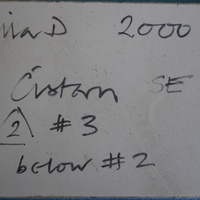 2000
Cistern SE
2 #3
below #2